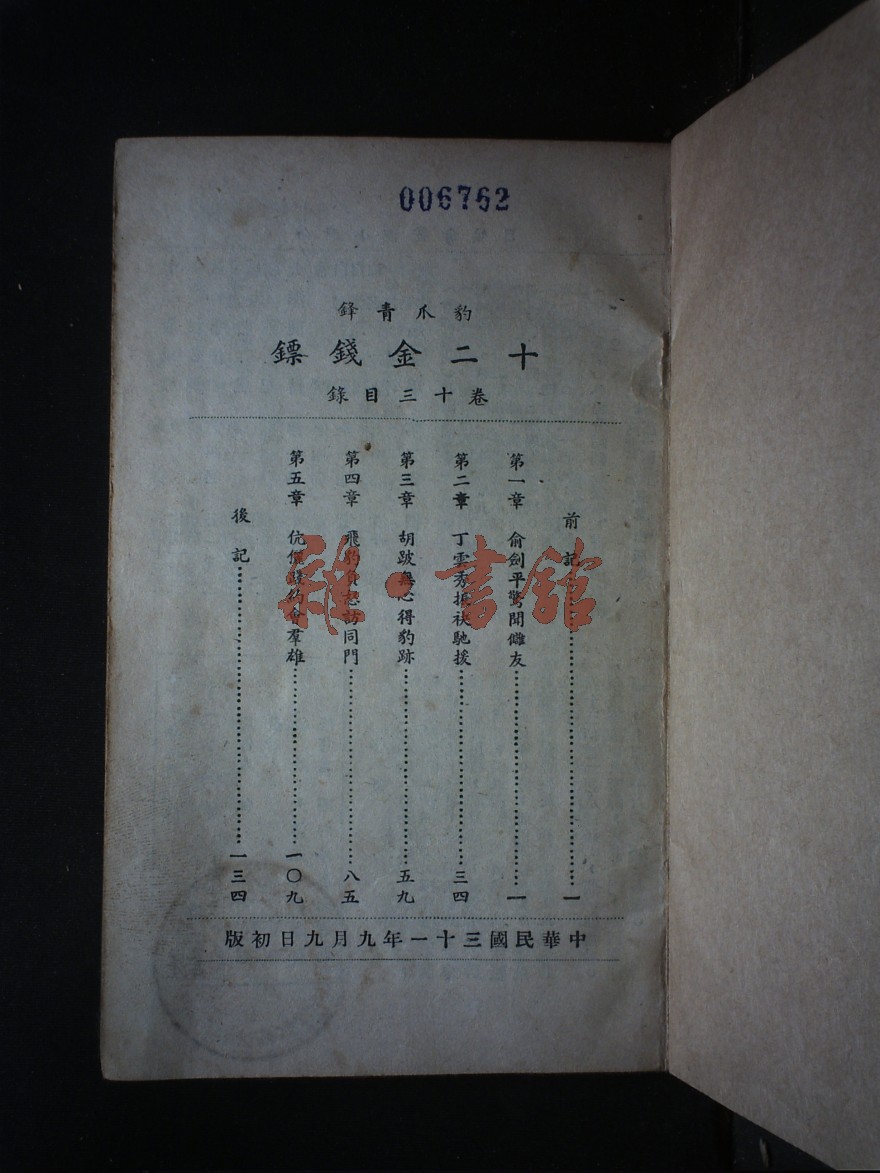 006762
豹爪青鋒
十二金錢鏢
卷十三目錄
前記……一
第一章 俞劍平驚聞讎友……一
第二章 丁雲秀振袂馳援……三四
第三章 胡跛無心得豹跡……五九
第四章 飛豹 訪同門……八五
第五章 伉儷踐約會羣雄……一〇九
後記……一三四
中華民國三十一年九月九日初版
雜·書館